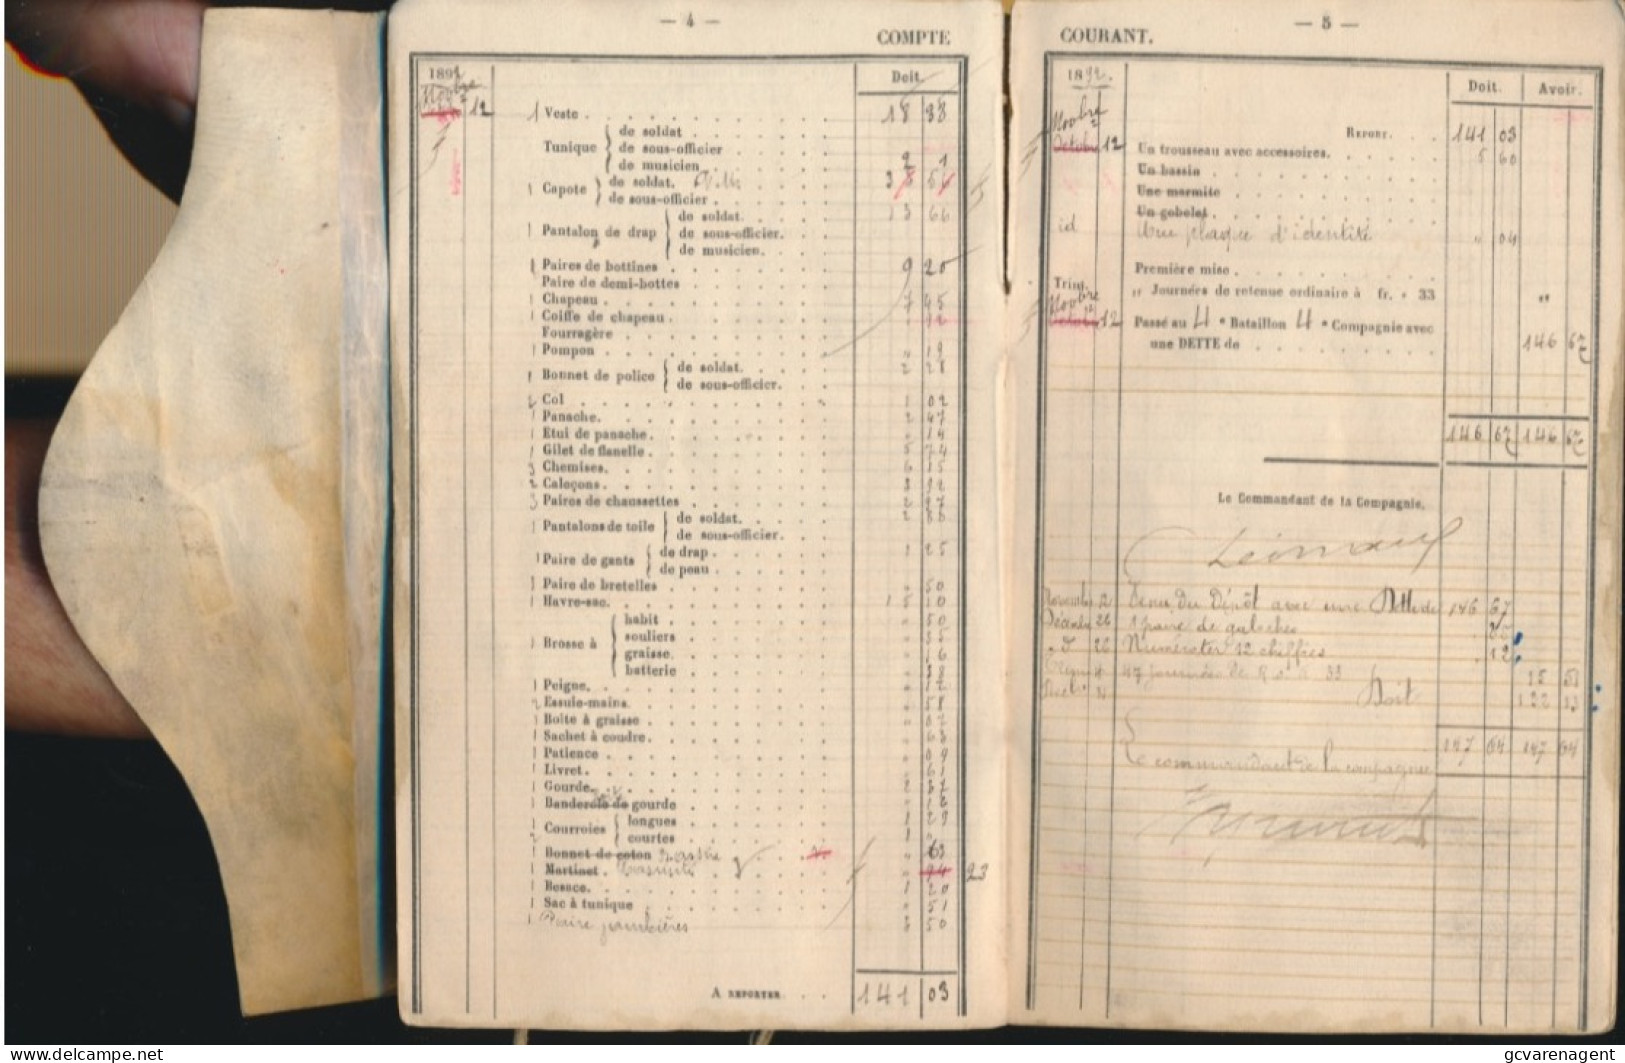 — 4 —
COMPTE
189
Novbre
12
Doit.
1 Veste . . . 18 33
Tunique
de soldat
de sous-officier
de musicien
1 Capote
de soldat.
de sous-officier
1 Pantalon de drap
de soldat. 13 66
de sous-officier.
de musicien.
1 Paires de bottines 9 20
Paire de demi-bottes
1 Chapeau 7 45
1 Coiffe de chapeau.
Fourragère
1 Pompon " 19
1 Bonnet de police
de soldat. 2 28
de sous-officier.
2 Col 1 02
1 Panache. 2 47
1 Etui de panache. " 14
1 Gilet de flanelle. 5 74
3 Chemises. 6 15
2 Caleçons. 3 92
3 Paires de chaussettes 2 97
1 Pantalons de toile
de soldat. 2
de sous-officier.
1 Paire de gants
de drap 1 25
de peau
1 Paire de bretelles " 50
1 Havre-sac. 15 10
Brosse à
habit " 50
souliers " 35
graisse. " 16
batterie " 38
1 Peigne. " 12
2 Essuie-mains. " 58
1 Boîte à graisse " 07
1 Sachet à coudre. " 63
1 Patience " 09
1 Livret. " 61
1 Gourde. 2 37
1 Banderole de gourde " 18
Courroies
longues 1 29
courtes 1 "
1 Bonnet de coton " 63
1 Martinet. 23
1 Besace. 1 20
1 Sac à tunique " 51
1 Paire jambières 3 50
A REPORTER 141 03
— 5 —
COURANT.
1892.
Doit. Avoir.
Novbre
Octobre 12
REPORT. 141 03
Un trousseau avec accessoires. 5 60
Un bassin
Une marmite
Un gobelet.
id Une plaque d'identité " 04
Première mise
Trim.
" Journées de retenue ordinaire à fr. » 33 "
Novbre
Octobre 12
Passé au 4e Bataillon 4e Compagnie avec
une DETTE de 146 67
146 67 146 67
Le Commandant de la Compagnie,
Novembre 12 Venu du Dépôt avec une Dette de 146 67
Décembre 26 1 paire de galoches
d° 26 Numéroter 12 chiffres . 12
4 47 journées de 33 15 51
Doit 132 13
147 64 147 64
Le commandant de la compagnie
www.delcampe.net
gcvarenagent